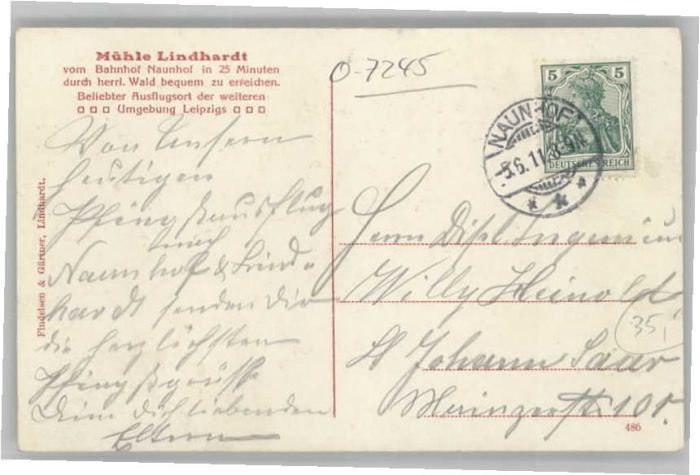 Mühle Lindhardt
vom Bahnhof Naunhof in 25 Minuten
durch herrl. Wald bequem zu erreichen.
Beliebter Ausflugsort der weiteren
Umgebung Leipzigs
O-7245
5 5
DEUTSCHES REICH
NAUNHOF
5.6.11. 8-9N.
Von unserm
heutigen
Pfingstausflug
nach
Naunhof & Lind-
hardt senden Dir
die herzlichsten
Pfingstgrüsse
Deine Dich liebenden
Eltern
Findeisen & Gärtner, Lindhardt.
Herrn Dipl. Ingenieur
Willy Heinold
35,
St Johann Saar
Mainzerstr. 101.
486